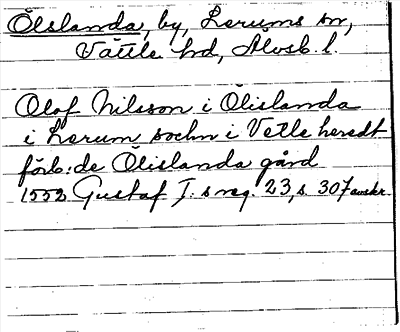 Ölslanda, by, Lerums sn,
Vättle hd, Älvsb. l.
Olof Nilsson i Ölislanda
i Lerum sochn i Vetle heredt
förb:de Ölislanda gård
1552 Gustaf I.s reg. 23, s. 307 avskr.